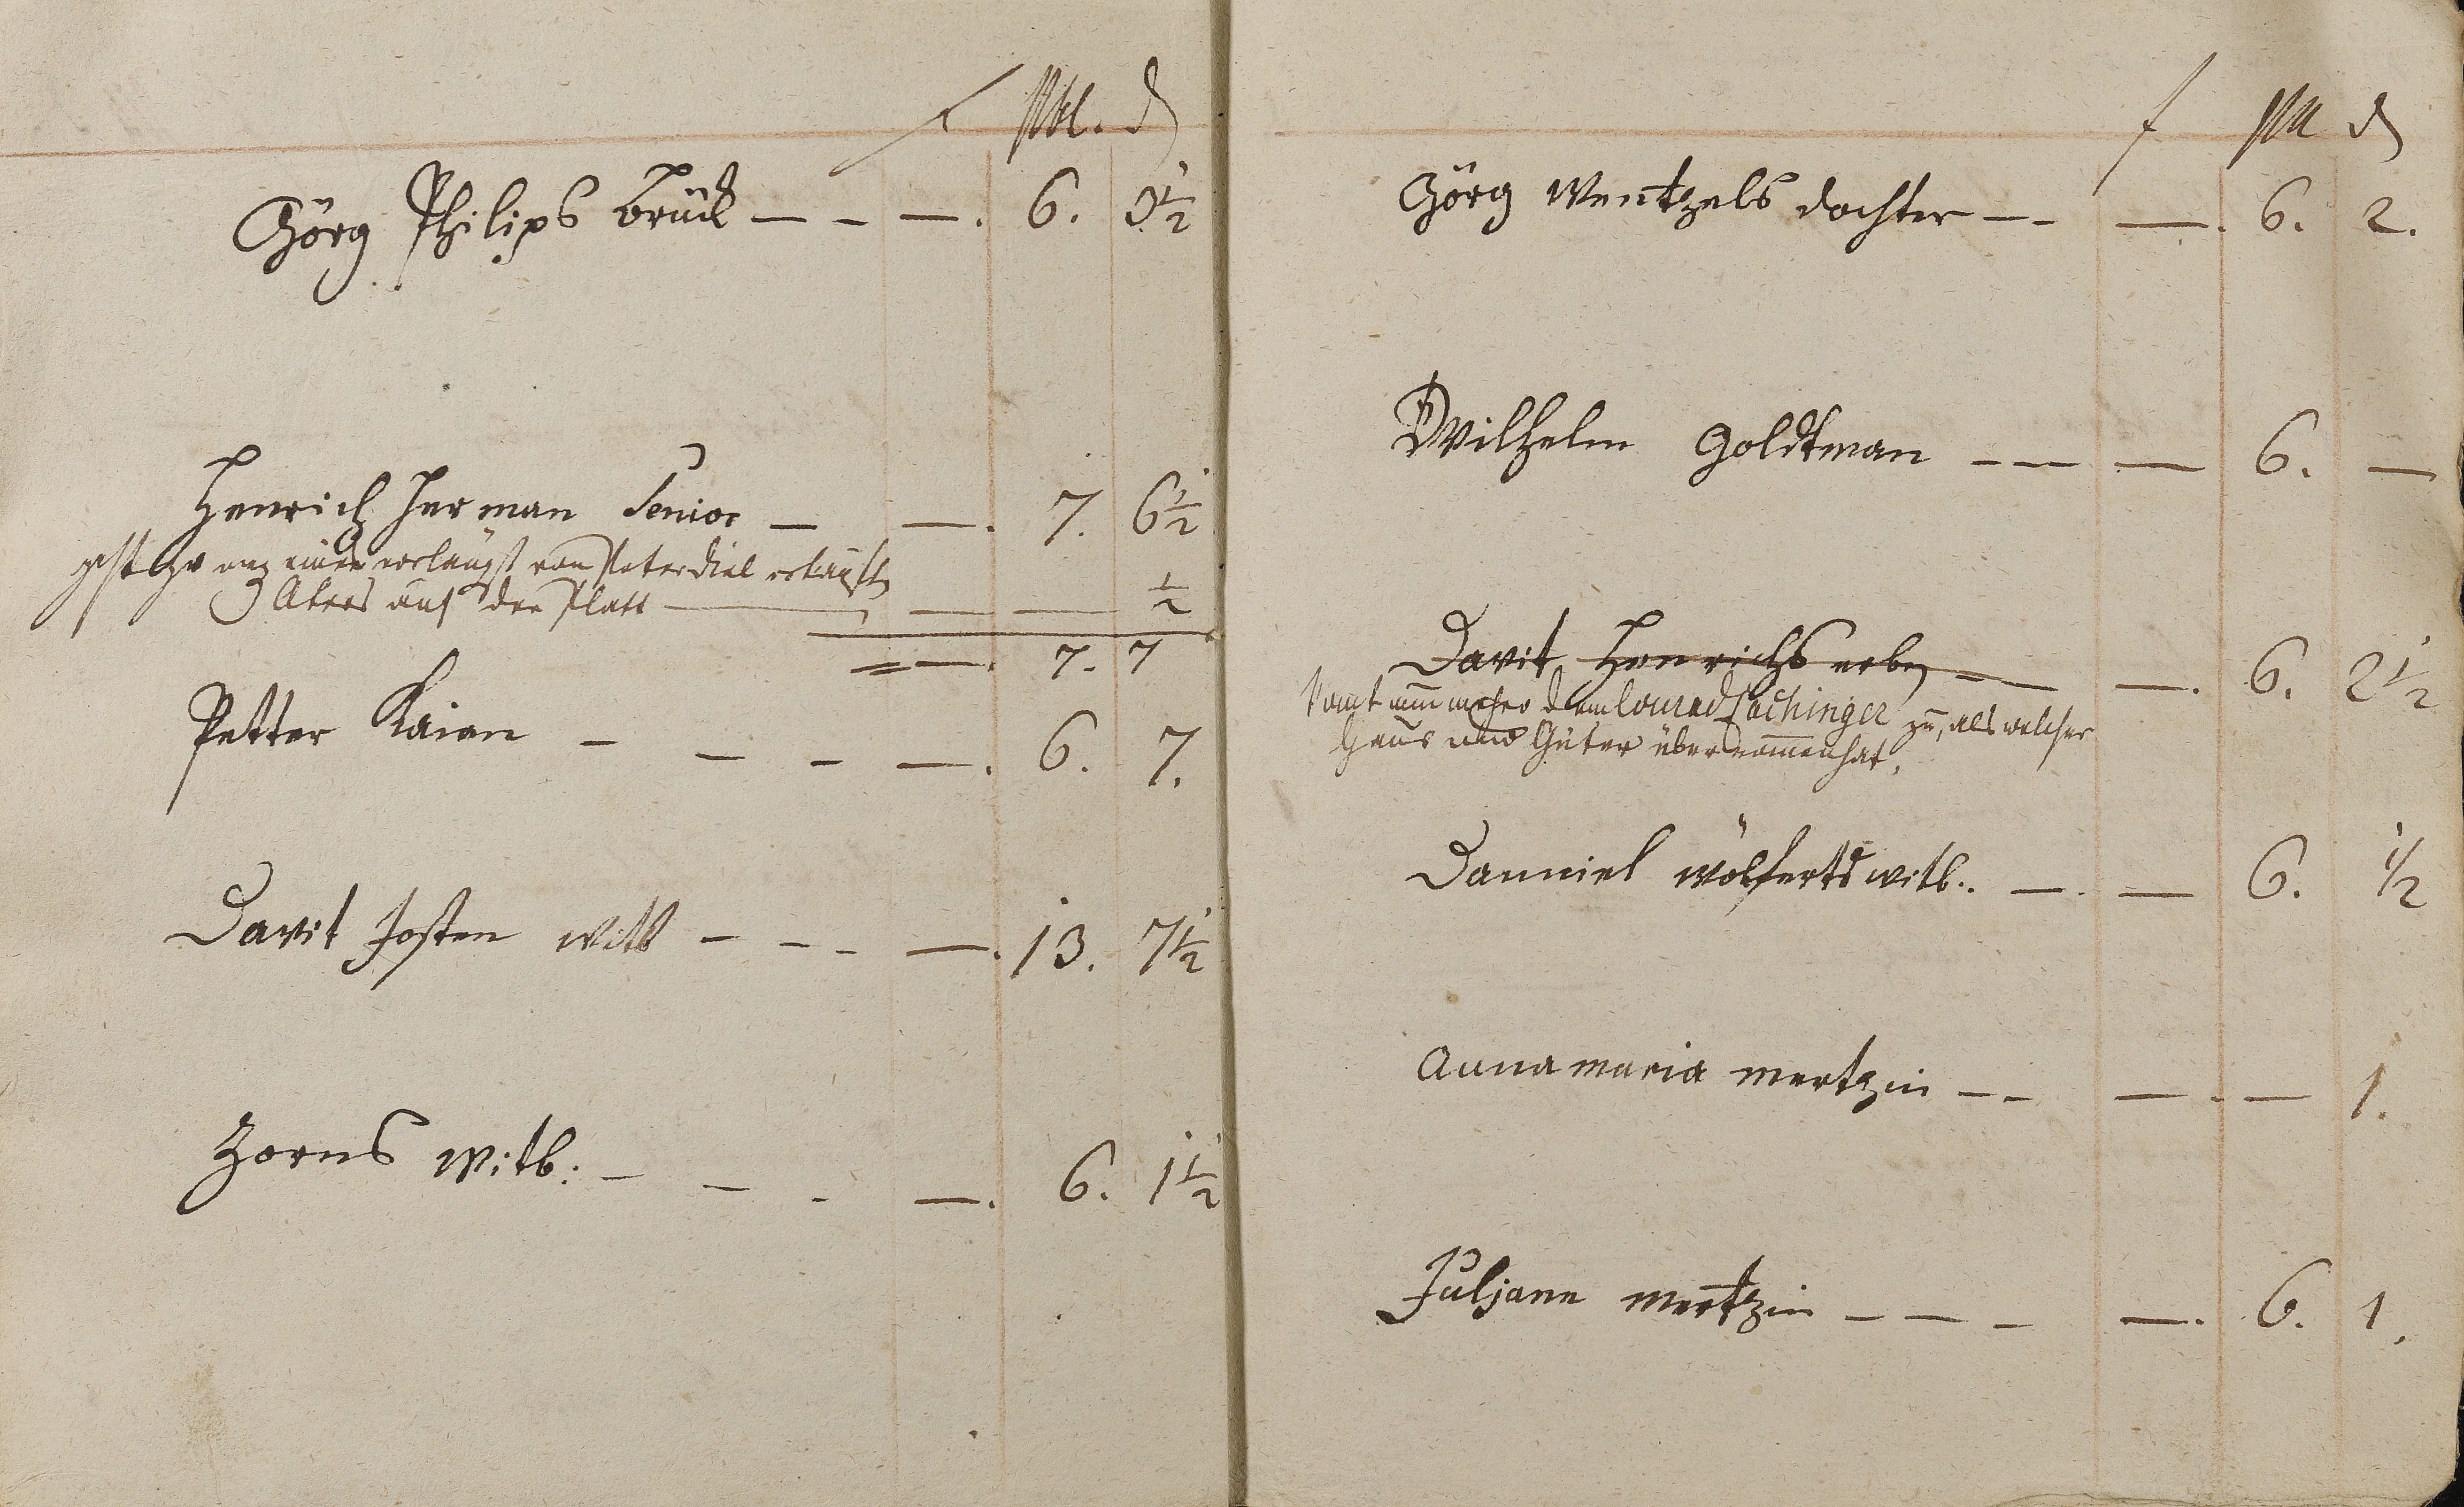 f alb. d
Görg Philips brück — — —. 6. 3½
Henrich Herman Senior — —. 7. 6½
geht zu wg eines vorlängst von Peter diel erkaufft
Akers auf der Platt — — — ½
= —. 7. 7
Petter Kaian — — — —. 6. 7.
Davit Josten witb — — — —. 13. 7½
Zorns witb: — — — —. 6. 1½
f alb d
Görg Wentzels dochter — — —. 6. 2.
Wilhelm Goldtman — — — 6. —
Davit Henrichs erben — — —. 6. 2½
komt nunmehro dem Conrad Lachinger zu, als welcher
Haus und Güter übernommen hat.
Danniel wölferts witb. — — 6. ½
Anna maria mertzin — — — . — 1.
Juljann mertzin — — — —. 6. 1.